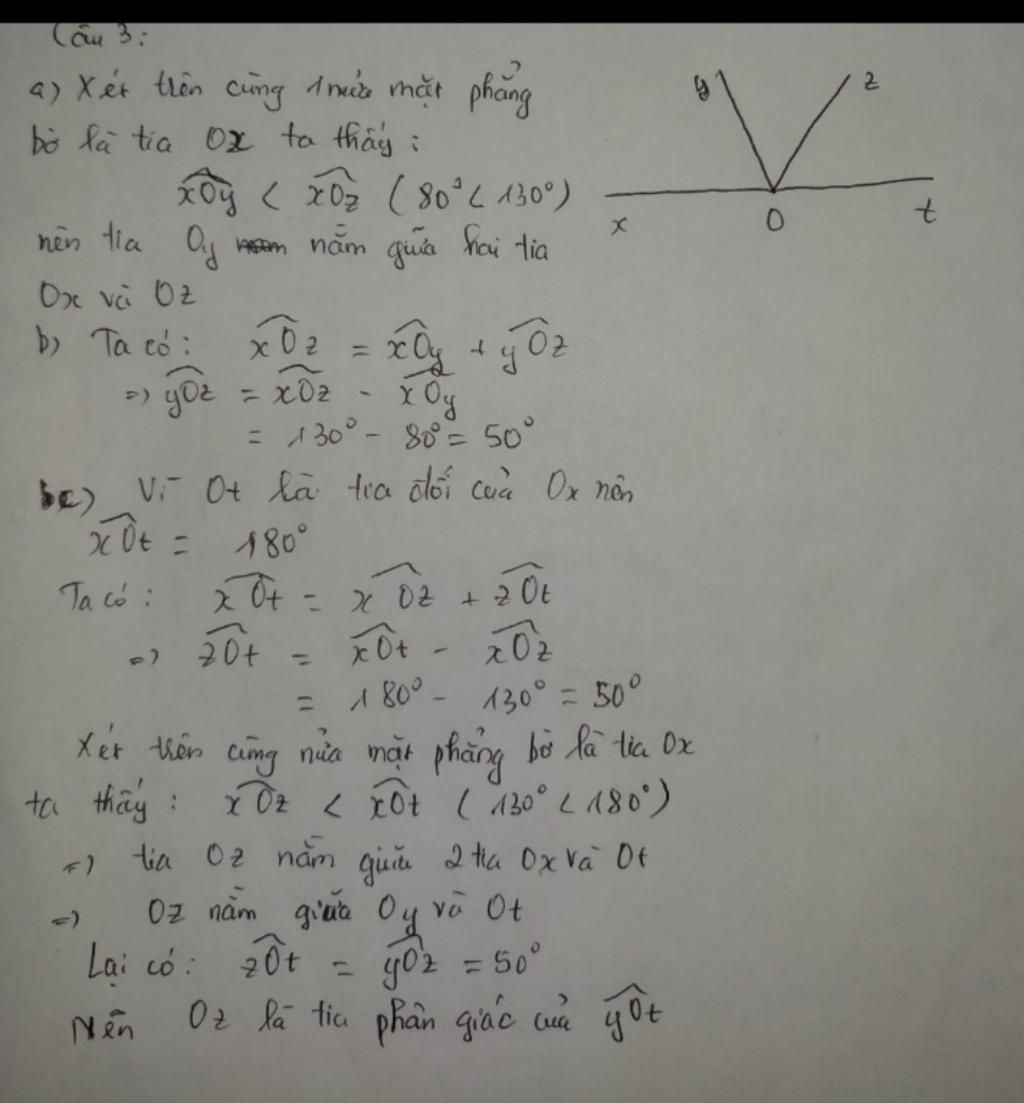 Câu 3:
a) Xét trên cùng 1 nửa mặt phẳng
bờ là tia Ox ta thấy:
xOy < xOz (80° < 130°)
nên tia Oy nằm giữa hai tia
Ox và Oz
b) Ta có: xOz = xOy + yOz
=> yOz = xOz - xOy
= 130° - 80° = 50°
c) Vì Ot là tia đối của Ox nên
xOt = 180°
Ta có: xOt = xOz + zOt
=> zOt = xOt - xOz
= 180° - 130° = 50°
Xét trên cùng nửa mặt phẳng bờ là tia Ox
ta thấy: xOz < xOt (130° < 180°)
=> tia Oz nằm giữa 2 tia Ox và Ot
=> Oz nằm giữa Oy và Ot
Lại có: zOt = yOz = 50°
Nên Oz là tia phân giác của yOt
y z
x O t